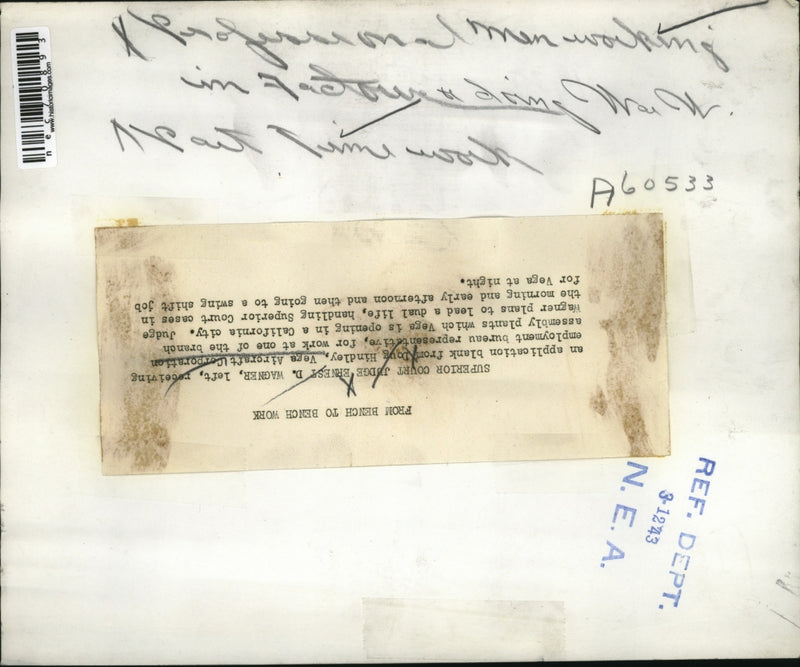 Professional men working
in Factories & doing War W.
Part time work
A60533
FROM BENCH TO BENCH WORK
SUPERIOR COURT JUDGE ERNEST D. WAGNER, left, receiving
an application blank from Doug Hindley, Vega Aircraft Corporation
employment bureau representative, for work at one of the branch
assembly plants which Vega is opening in a California city. Judge
Wagner plans to lead a dual life, handling Superior Court cases in
the morning and early afternoon and then going to a swing shift job
for Vega at night.
REF. DEPT.
3-12-43
N. E. A.
www.historicimages.com